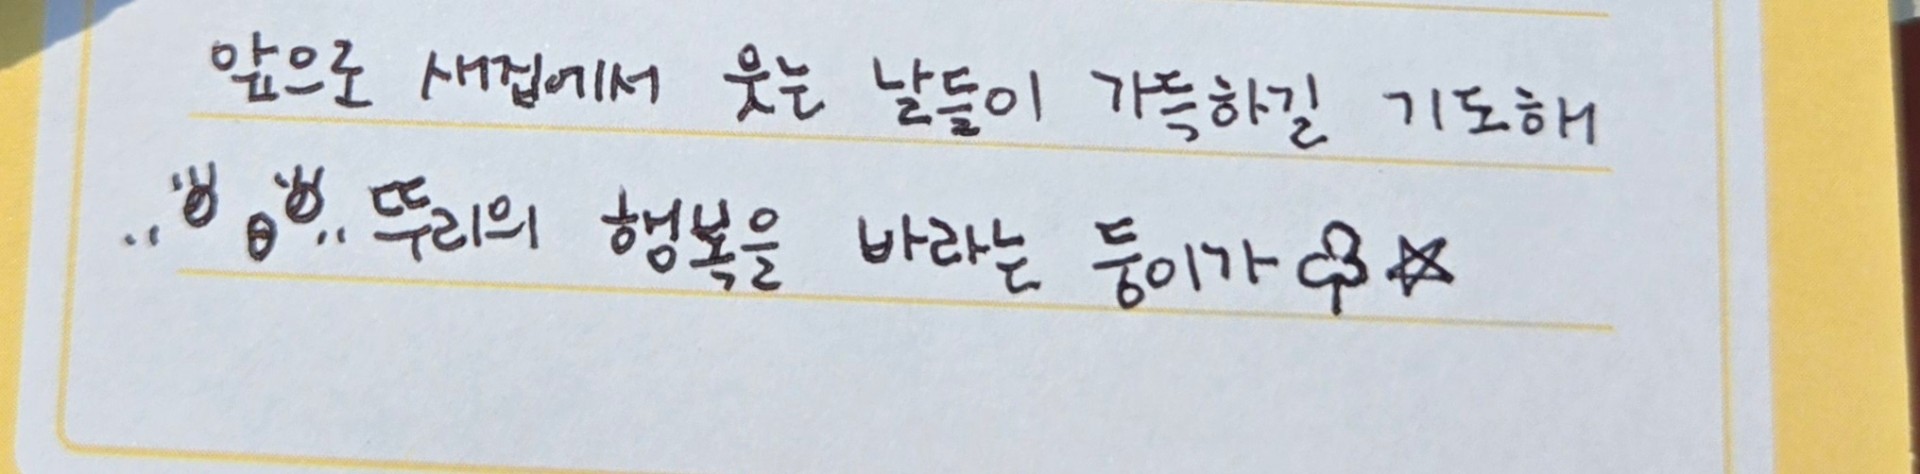 앞으로 새집에서 웃는 날들이 가득하길 기도해
뚜리의 행복을 바라는 둥이가